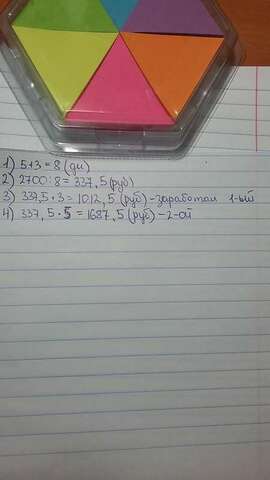 1) 5+3 = 8 (дн)
2) 2700:8 = 337,5 (руб)
3) 337,5 · 3 = 1012,5 (руб) - заработал 1-ый
4) 337,5 · 5 = 1687,5 (руб) - 2-ой